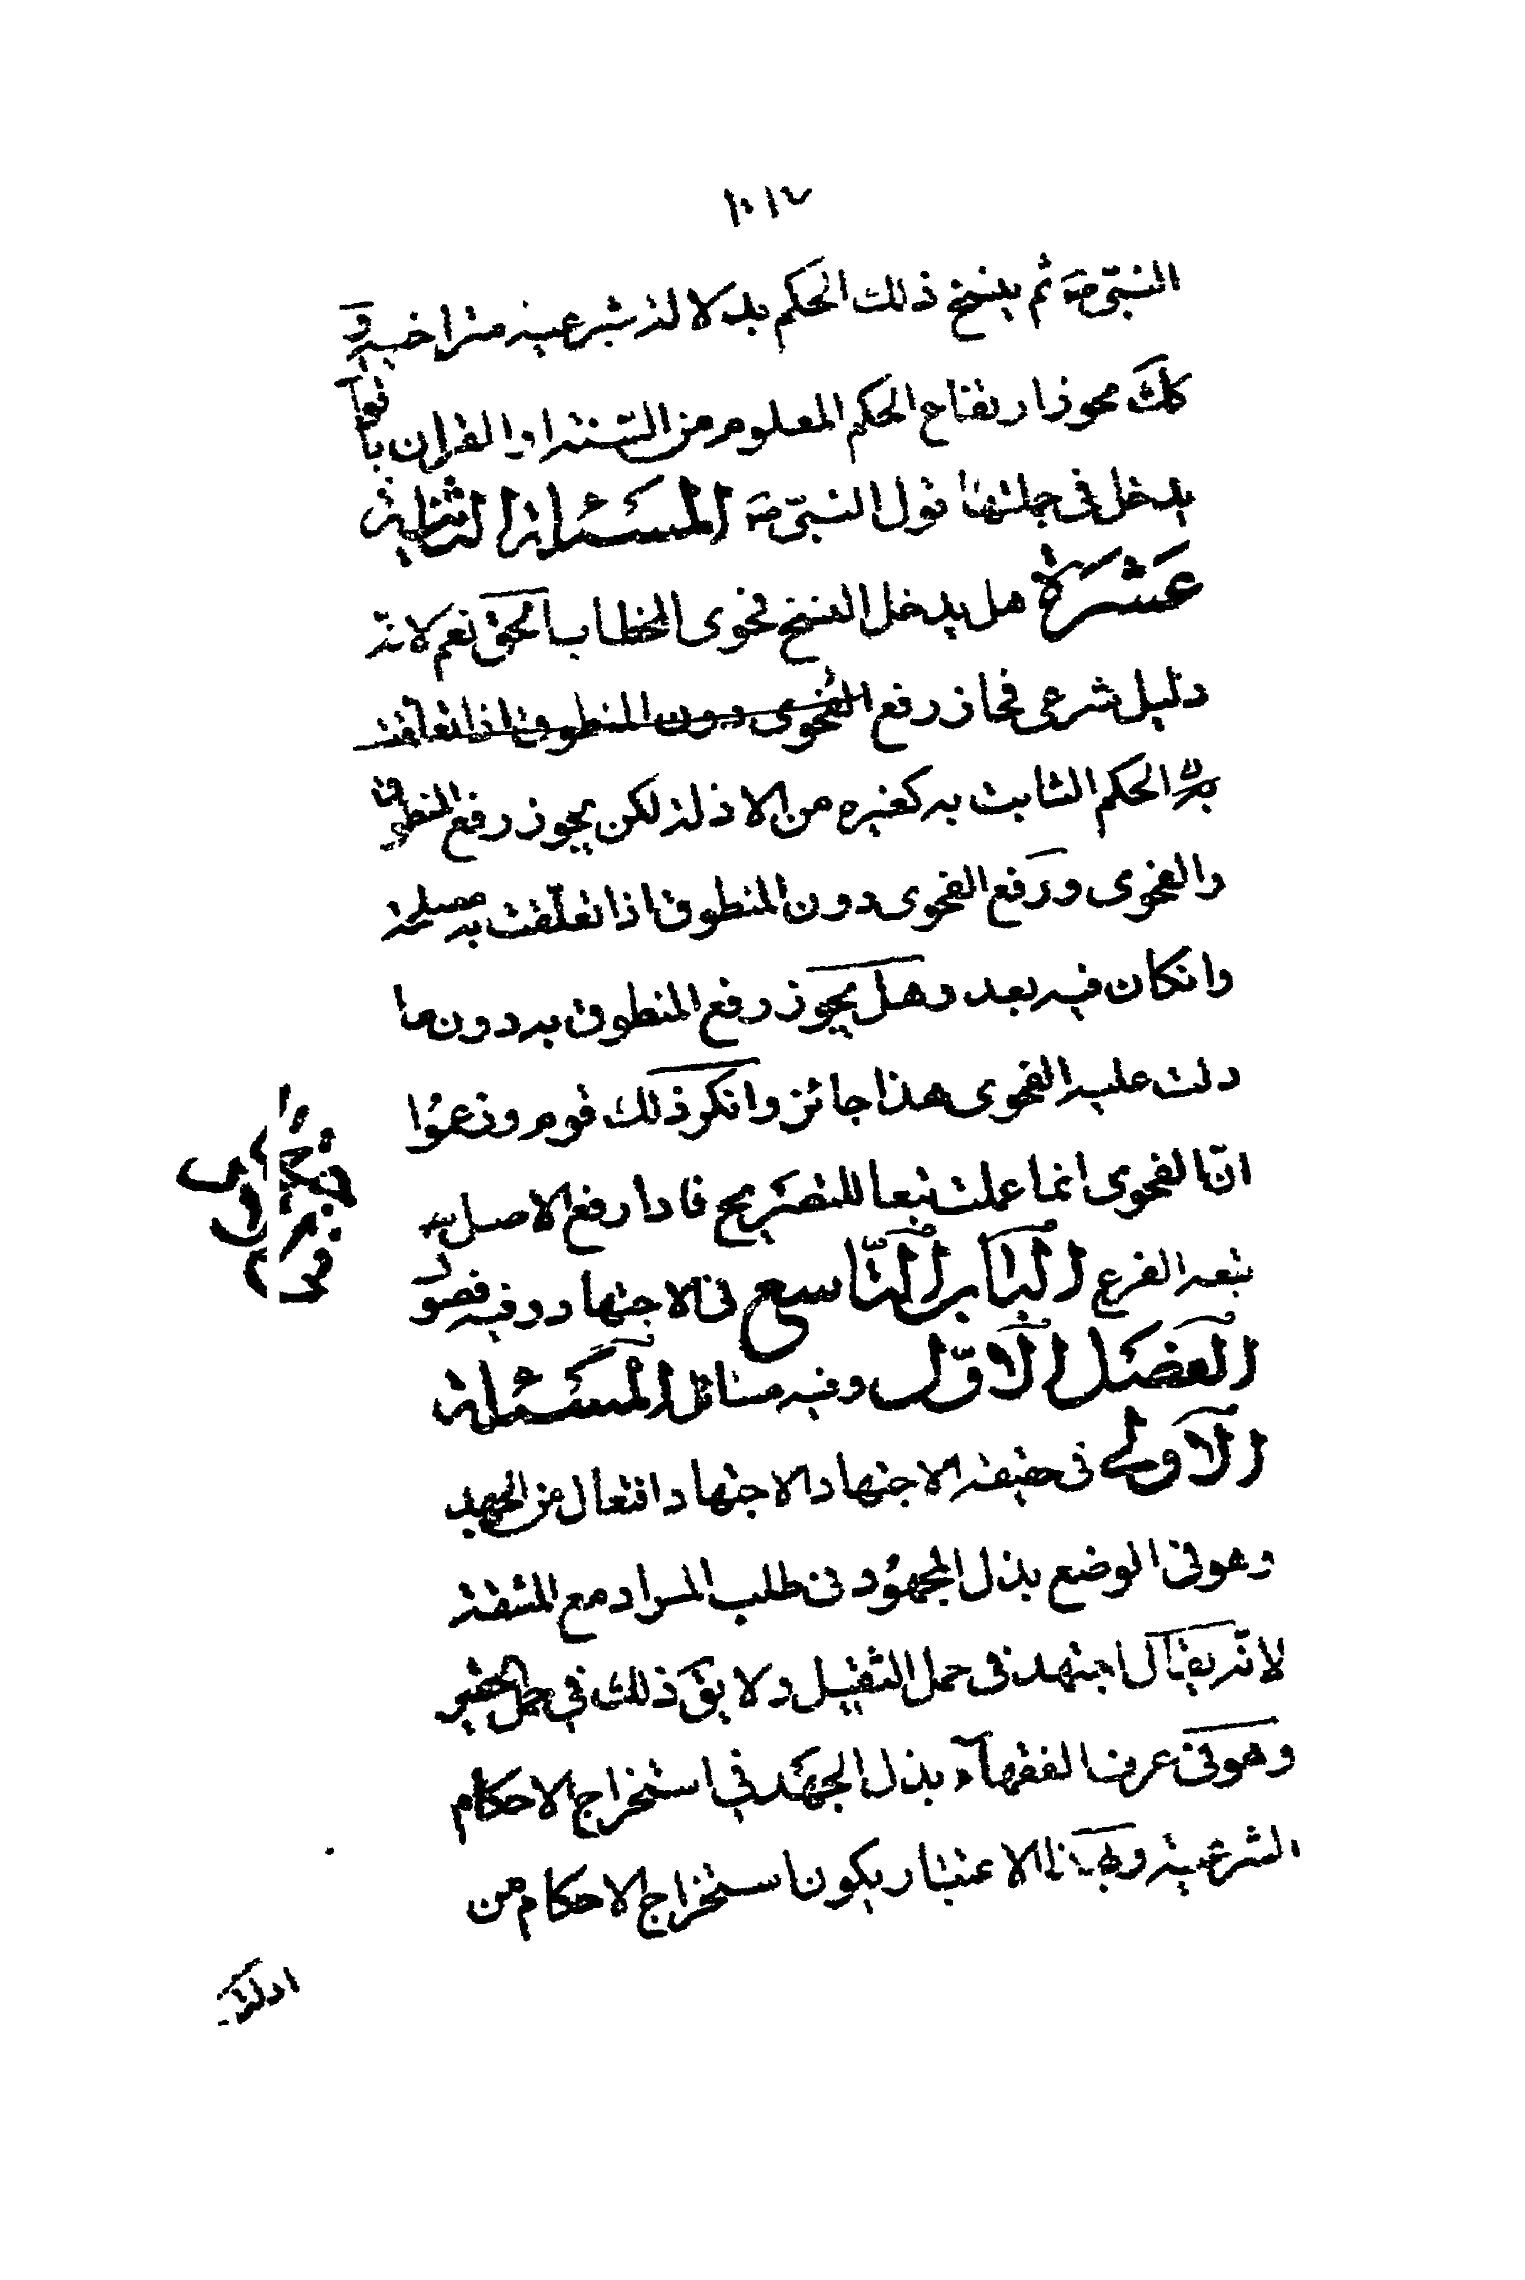 ١٠١٧
النبي صه ثم ينسخ ذلك الحكم بدلالة شرعية متراخية و
كك يجوز ارتفاع الحكم المعلوم من السنة او القران بانواع
يدخل في جملتها قول النبي صه المسئلة الثانية
عشرة هل يدخل النسخ فحوى الخطاب الحق نعم لانه
دليل شرعي فجاز رفع الفحوى دون المنطوق اذا تعلقت
به الحكم الثابت به كغيره من الادلة لكن يجوز رفع المنطوق
والفحوى ورفع الفحوى دون المنطوق اذا تعلقت به مصلحة
وانكان فيه بعد وهل يجوز رفع المنطوق به دون ما
دلت عليه الفحوى هذا جائز وانكر ذلك قوم وزعموا
ان الفحوى انما عملت تبعا للتصريح فاذا رفع الاصل
تبعه الفرع الباب التاسع في الاجتهاد وفيه فصول
الفصل الاول وفيه مسائل المسئلة
الاولى في حقيقة الاجتهاد الاجتهاد افتعال من الجهد
وهو في الوضع بذل المجهود في طلب المراد مع المشقة
لانه يقال اجتهد في حمل الثقيل ولا يق ذلك في حمل الحقير
وهو في عرف الفقهاء بذل الجهد في استخراج الاحكام
الشرعية وبهذا الاعتبار يكون استخراج الاحكام من
ادلة